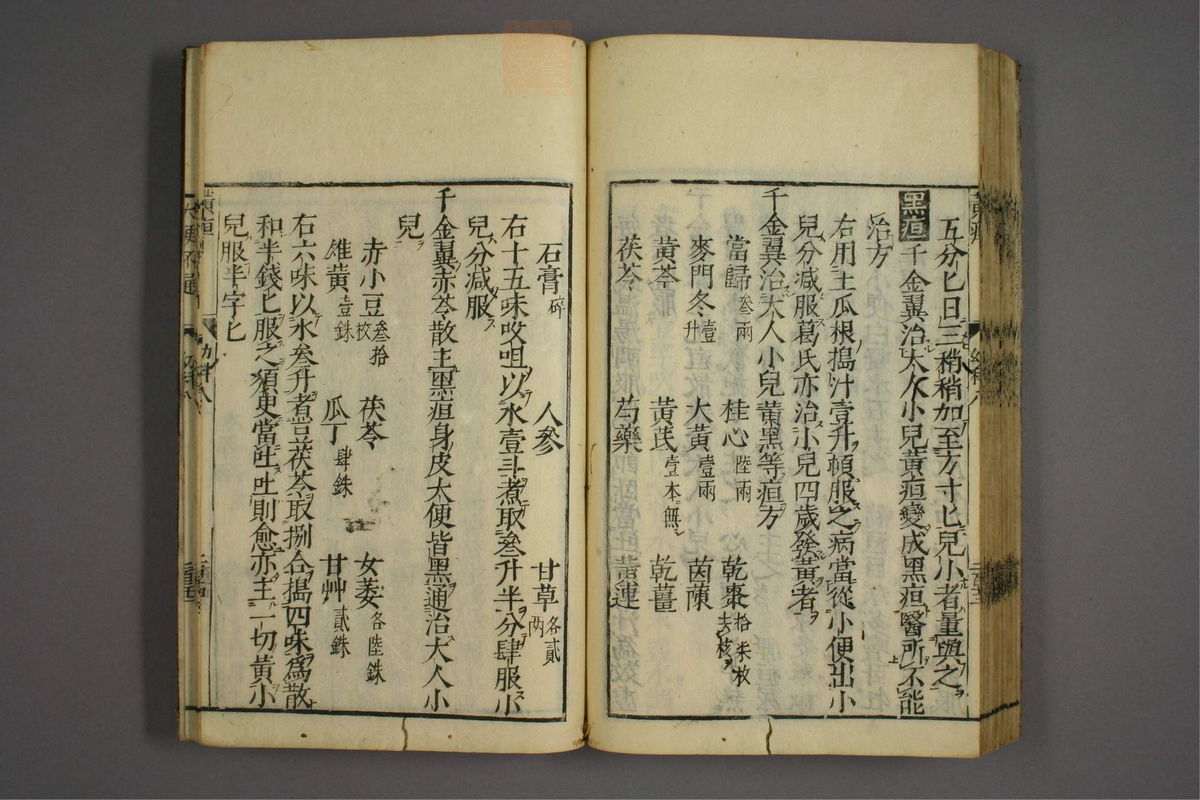 五分匕日三稍稍加至方寸匕兒小者量與之
黑疸千金翼治大人小兒黃疸變成黑疸醫所不能
治方
右用土瓜根搗汁壹升頓服之病當從小便出小
兒分減服葛氏亦治小兒四歲發黃者
千金翼治大人小兒黃黑等疸方
當歸叁兩 桂心陸兩 乾棗拾柒枚去核
麥門冬壹升 大黃壹兩 茵蔯
黃芩 黃芪壹本無 乾薑
茯苓 芍藥 黃連
石膏碎 人參 甘草各貳兩
右十五味㕮咀以水壹斗煮取叁升半分肆服小
兒分減服
千金翼赤苓散主黑疸身皮大便皆黑通治大人小
兒
赤小豆叁拾枚 茯苓 女萎各陸銖
雄黃壹銖 瓜丁肆銖 甘艸貳銖
右六味以水叁升煮豆茯苓取捌合搗四味為散
和半錢匕服之須臾當吐吐則愈亦主一切黃小
兒服半字匕